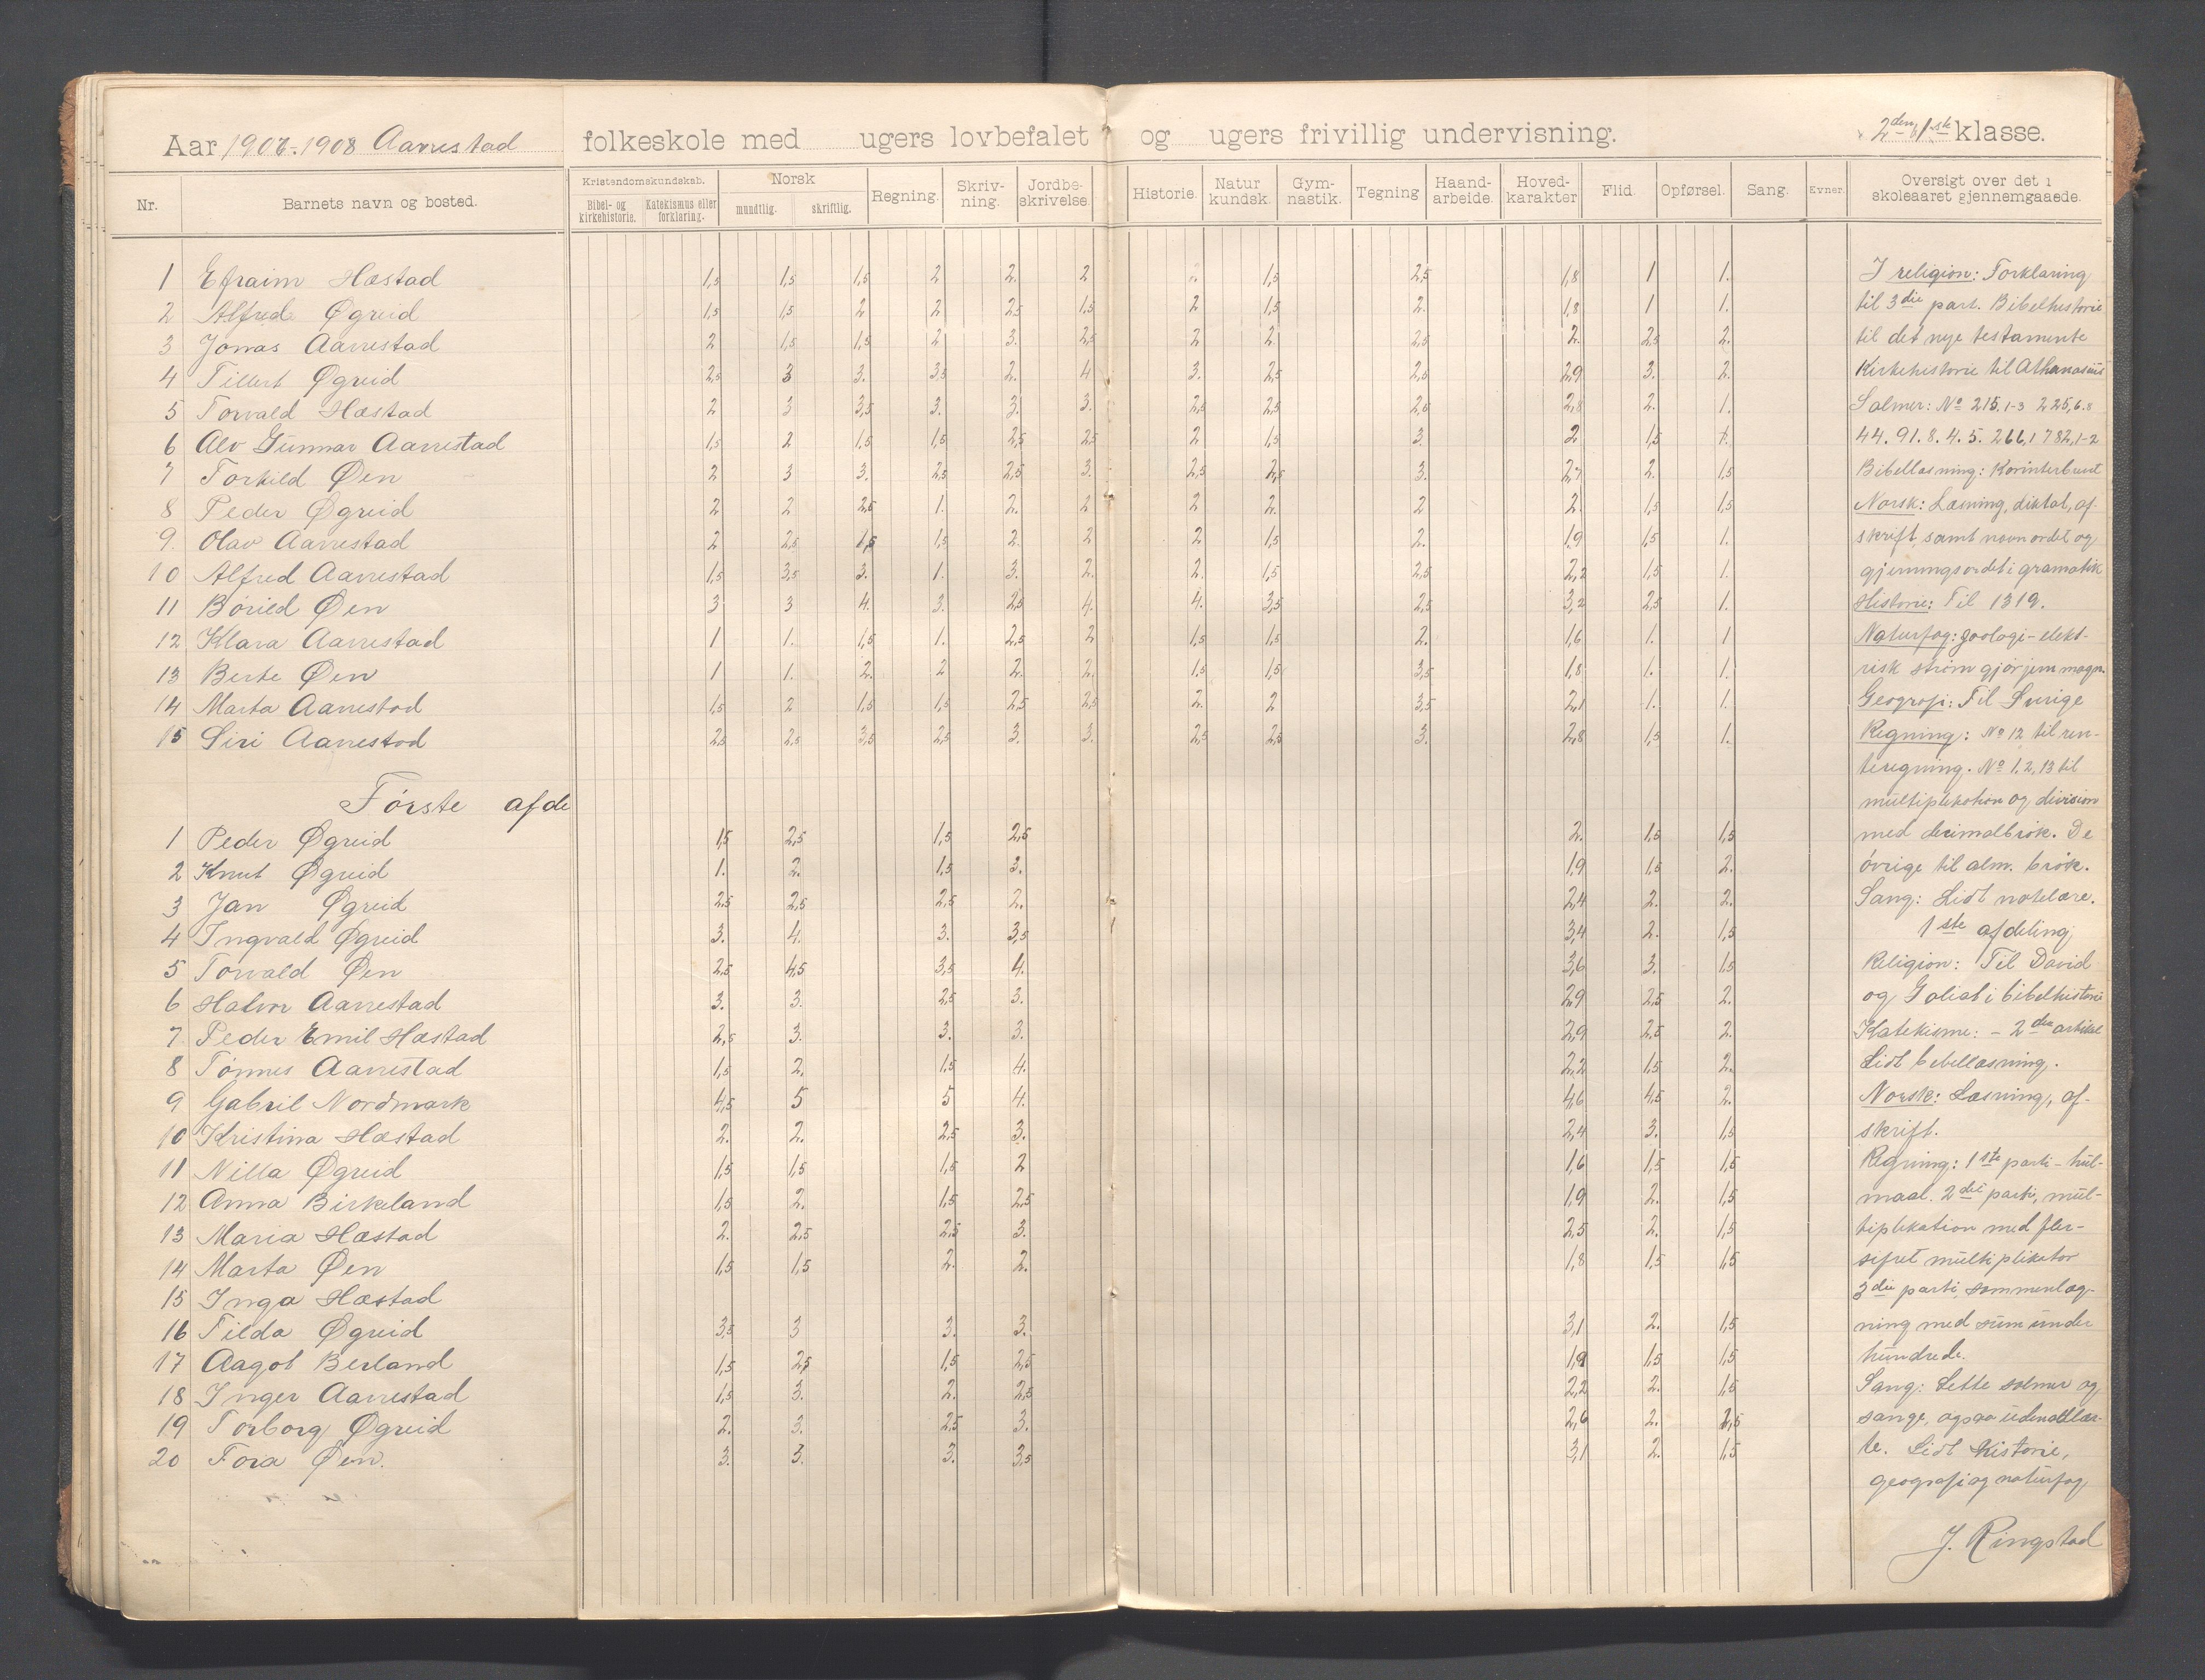 Aar 1907-1908 Aarrestad folkeskole med ugers lovbefalet og ugers frivillig undervisning. 2den 1ste klasse.
Nr. Barnets navn og bosted. Kristendomskundskab. Bibel- og kirkehistorie. Katekismus eller forklaring. Norsk mundtlig. skriftlig. Regning. Skriv-ning. Jordbe-skrivelse. Historie. Natur kundsk. Gym-nastik. Tegning Haand-arbeide. Hoved-karakter Flid. Opførsel. Sang. Evner. Oversigt over det i skoleaaret gjennemgaaede.
1 Efraim Hæstad 1,5 1,5 1,5 2 2. 2 1,5 2,5 1,8 1 1. I religion: Forklaring
2 Alfred Øgreid 1,5 1,5 2 2 2,5 1,5 2 1,5 2. 1,8 1 1. til 3die part. Bibelhistorie
3 Jonas Aarrestad 2 1,5 1,5 2 3. 2,5 2 2. 2,5 2. 2,5 2. til det nye testamente
4 Tillert Øgreid 2,5 3 3. 3,5 2. 4 3. 2,5 2,5 2,9 3. 2. Kirkehistorie til Athanasius
5 Torvald Hæstad 2 3 3,5 3. 3. 3. 2,5 2,5 2,5 2,8 2. 1. Salmer: No 215.1-3 225,6.8
6 Alv Gunnar Aarrestad 1,5 2 1,5 1,5 2,5 2,5 2 1,5 3. 2 1,5 1. 44. 91. 8. 4. 5. 266,1 782,1-2
7 Torkild Øen 2 3 3. 2,5 2,5 3. 2,5 2,5 3. 2,7 2. 1,5 Bibellæsning:
8 Peder Øgreid 2 2 2,5 1. 2. 2 2 2. 2 2. 1,5 1,5 Norsk: Læsning, diktat, af-
9. Olav Aarrestad 2 2,5 1,5 1,5 2. 2 2 1,5 2. 1,9 1,5 1. skrift samt navnordet og
10 Alfred Aarrestad 1,5 3,5 3. 1. 3. 2. 2. 1,5 2,5 2,2 1,5 1. gjerningsordet i gramatik
11 Børild Øen 3 3 4. 3. 2,5 4. 4. 3,5 2,5 3,2 2,5 1. Historie: Til 1319.
12 Klara Aarrestad 1 1. 1,5 1. 2,5 2 1,5 1,5 2. 1,6 1. 1 Naturfag: zoologi-elekt-
13 Berte Øen 1 1. 2. 2 2. 2. 1,5 1,5 3,5 1,8 1. 1. risk strøm gjør jern magn.
14 Marta Aarrestad 1,5 2 1,5 1,5 2,5 2,5 2. 2 3,5 2,1 1. 1. Geografi: Til Sverige
15 Siri Aarrestad 2,5 2,5 3,5 2,5 3. 3. 2,5 2,5 3. 2,8 1,5 1. Regning: No 12 til ren-
teregning. No 1, 2, 13 til
Første afde multiplikation og division
1 Peder Øgreid 1,5 2,5 1,5 2,5 2. 1,5 1,5 med decimalbrøk. De
2 Knut Øgreid 1. 2. 1,5 3. 1,9 1,5 2. øvrige til alm. brøk.
3 Jan Øgreid 2,5 2,5 2,5 2. 2,4 2. 2. Sang: Lidt notelære.
4 Ingvald Øgreid 3. 4. 3. 3,5 3,4 2. 1,5 1ste afdeling
5 Torvald Øen 2,5 4,5 3,5 4. 3,6 3. 1,5 Religion: Til David
6 Halvor Aarrestad 3. 3. 2,5 3. 2,9 2,5 2. og Goliat i bibelhistorie
7 Peder Emil Hæstad 2,5 3. 3. 3. 2,9 2,5 2. Katekisme: - 2den artikel
8 Tønnes Aarrestad 1,5 2. 1,5 4. 2,2 1,5 2. Lidt bibellæsning.
9 Gabril Nordmark 4,5 5 5 4. 4,6 4,5 2. Norsk: Læsning, af-
10 Kristina Hæstad 2. 2. 2,5 3. 2,4 3. 1,5 skrift.
11 Nilla Øgreid 1,5 1,5 1,5 2 1,6 1,5 1,5 Regning: 1ste parti - hul-
12 Anna Birkeland 1,5 2. 1,5 2,5 1,9 2. 1,5 maal. 2det parti, mul-
13 Maria Hæstad 2. 2,5 2,5 3. 2,5 2. 1,5 tiplikation med fler-
14 Marta Øen 1,5 1,5 2. 2. 1,8 1,5 1,5 sifret multiplikator
15 Inga Hæstad 3die parti, sammenlæg-
16 Tilda Øgreid 3,5 3 3. 3. 3,1 2. 1,5 ning med sum under
17 Aagot Berland 1,5 2,5 1,5 2,5 1,9 1,5 1,5 hundrede.
18 Inger Aarrestad 1,5 3. 2. 2,5 2,2 2. 1,5 Sang: Lette salmer og
19 Torborg Øgreid 2. 3. 2,5 3. 2,6 2. 1,5 sange, ogsaa udenadlær-
20 Tora Øen. 3. 3. 3. 3,5 3,1 2. 1,5 te. Lidt historie,
geografi og naturfag
J. Ringstad